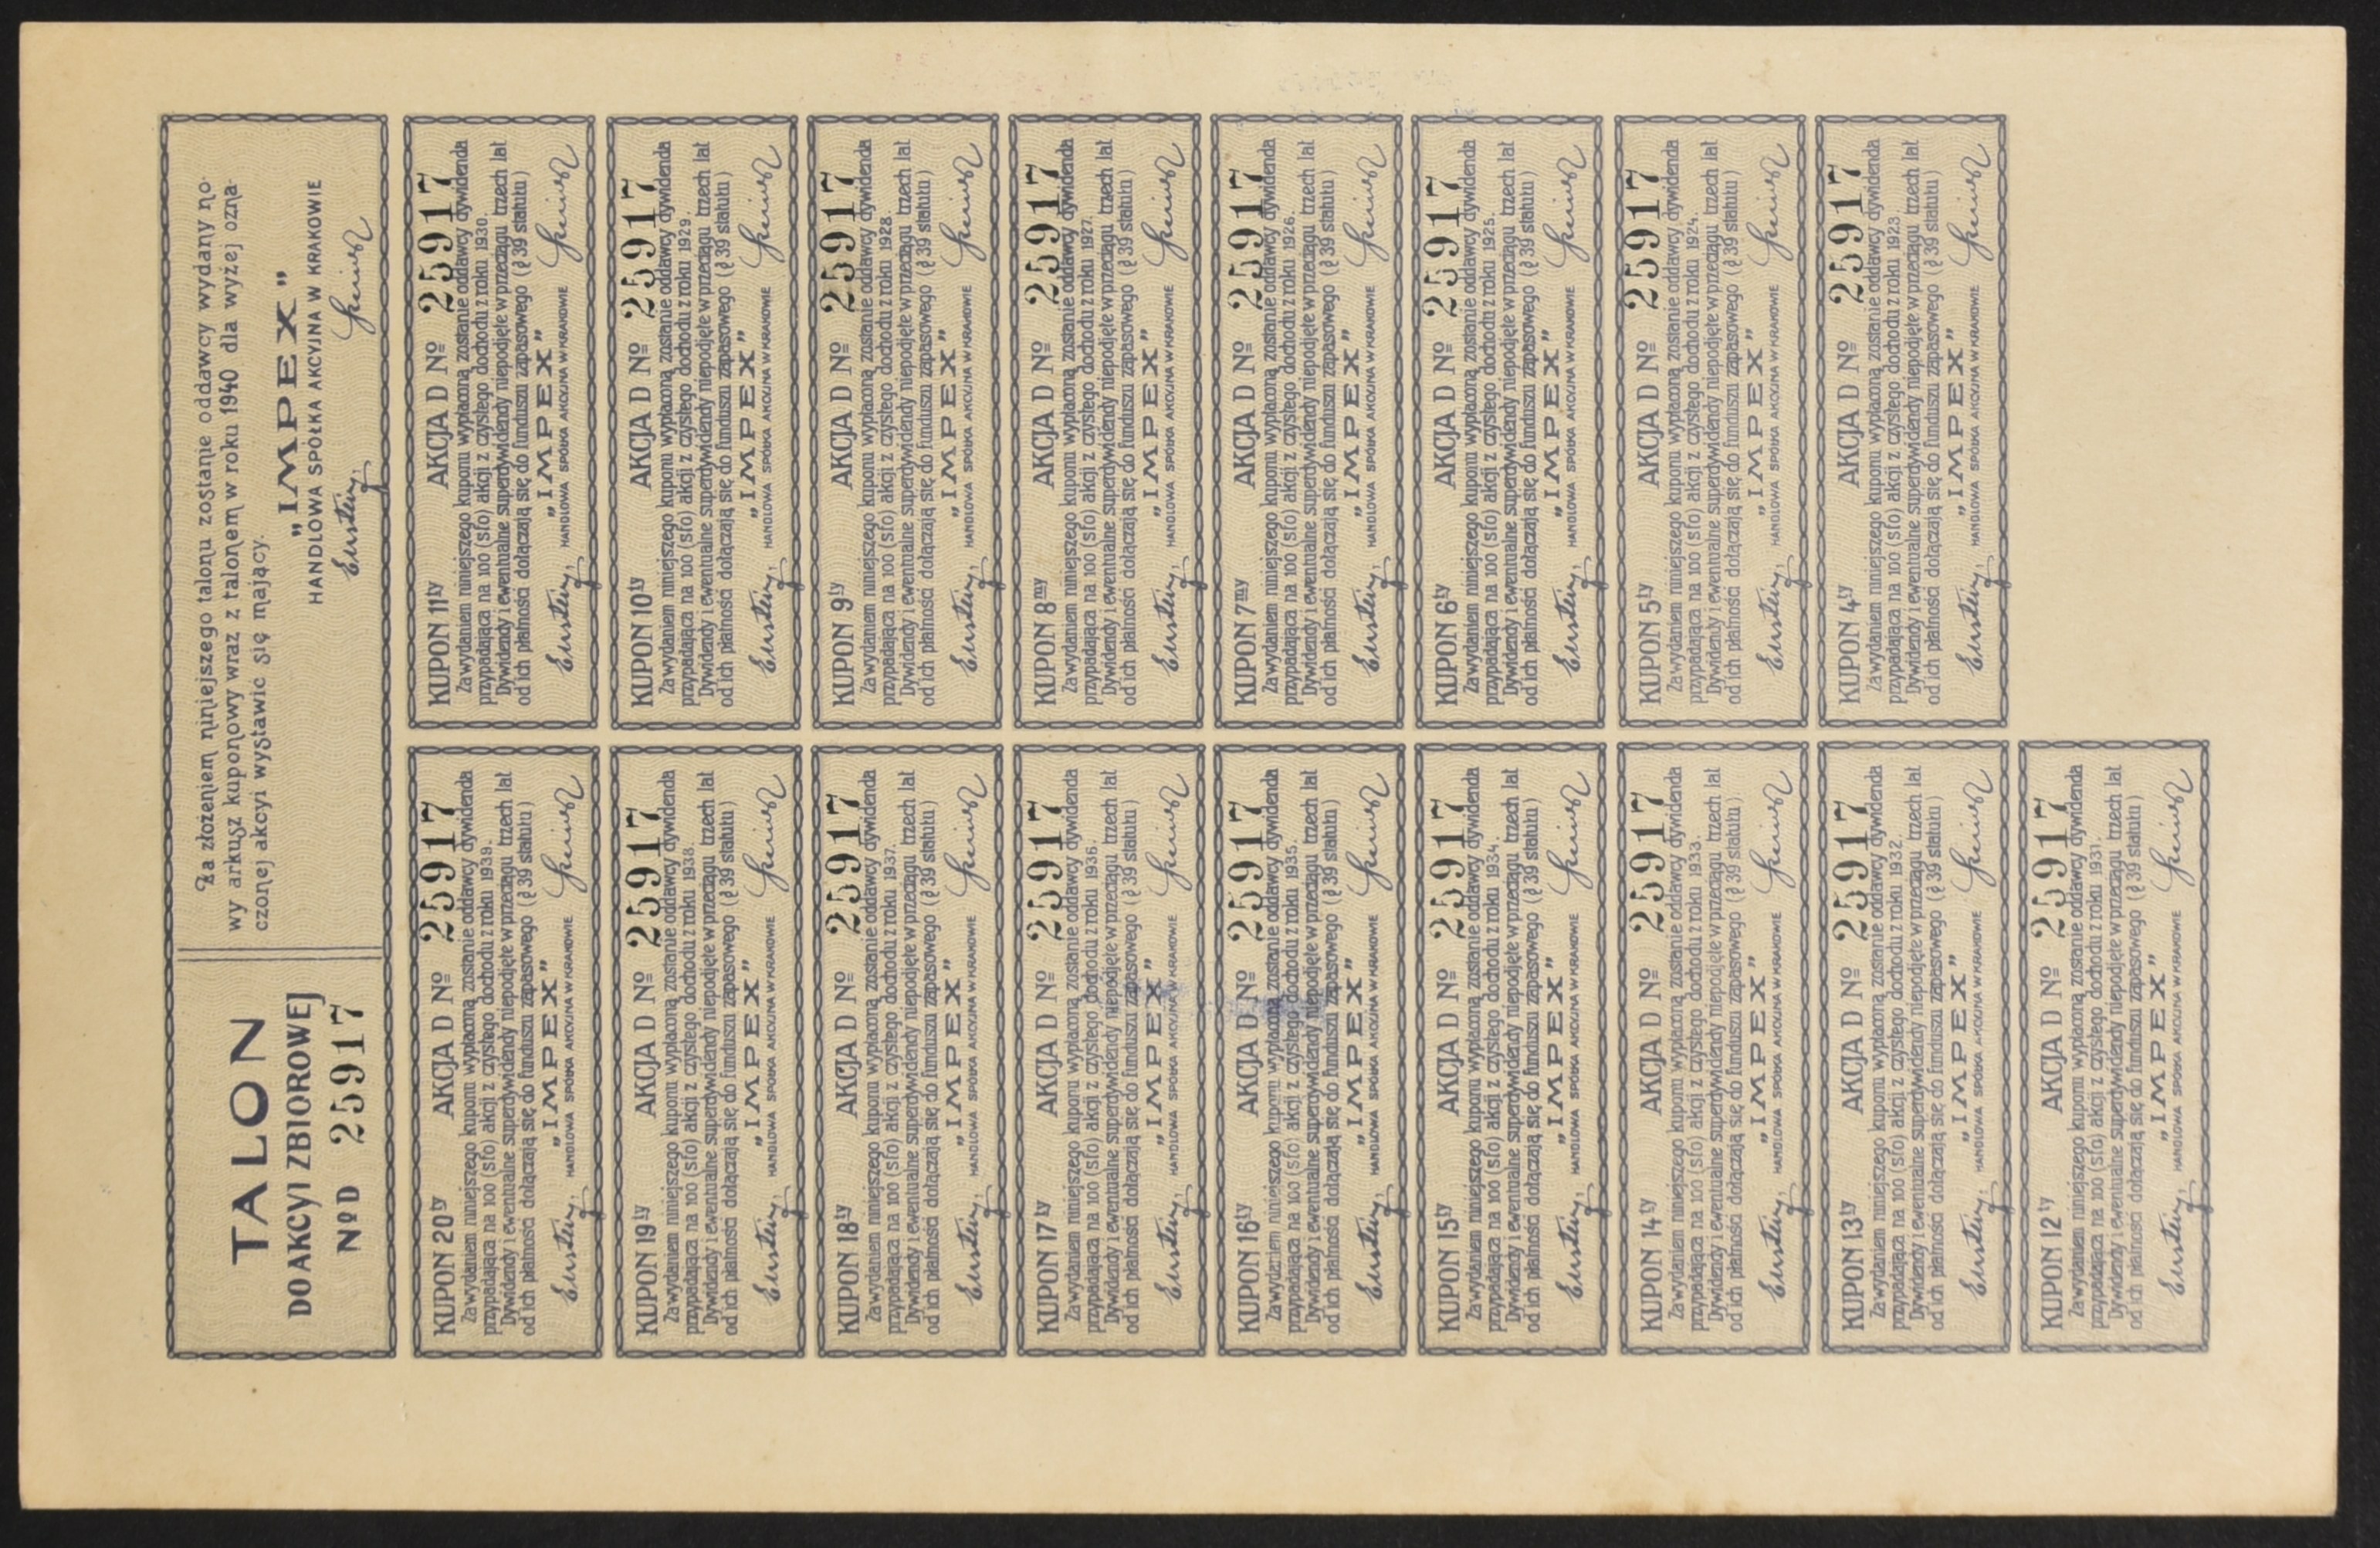 TALON
DO AKCYI ZBIOROWEJ
№ D 25917
Za złożeniem niniejszego talonu zostanie oddawcy wydany no-
wy arkusz kuponowy wraz z talonem w roku 1940 dla wyżej ozna-
czonej akcyi wystawić się mający.
„IMPEX”
HANDLOWA SPÓŁKA AKCYJNA W KRAKOWIE
KUPON 20ty AKCJA D № 25917
Za wydaniem niniejszego kuponu wypłaconą zostanie oddawcy dywidenda
przypadająca na 100 (sto) akcji z czystego dochodu z roku 1939.
Dywidendy i ewentualne superdywidendy niepodjęte w przeciągu trzech lat
od ich płatności dołączają się do funduszu zapasowego (§ 39 statutu)
„IMPEX”
HANDLOWA SPÓŁKA AKCYJNA W KRAKOWIE
KUPON 11ty AKCJA D № 25917
Za wydaniem niniejszego kuponu wypłaconą zostanie oddawcy dywidenda
przypadająca na 100 (sto) akcji z czystego dochodu z roku 1930.
Dywidendy i ewentualne superdywidendy niepodjęte w przeciągu trzech lat
od ich płatności dołączają się do funduszu zapasowego (§ 39 statutu)
„IMPEX”
HANDLOWA SPÓŁKA AKCYJNA W KRAKOWIE
KUPON 19ty AKCJA D № 25917
Za wydaniem niniejszego kuponu wypłaconą zostanie oddawcy dywidenda
przypadająca na 100 (sto) akcji z czystego dochodu z roku 1938.
Dywidendy i ewentualne superdywidendy niepodjęte w przeciągu trzech lat
od ich płatności dołączają się do funduszu zapasowego (§ 39 statutu)
„IMPEX”
HANDLOWA SPÓŁKA AKCYJNA W KRAKOWIE
KUPON 10ty AKCJA D № 25917
Za wydaniem niniejszego kuponu wypłaconą zostanie oddawcy dywidenda
przypadająca na 100 (sto) akcji z czystego dochodu z roku 1929.
Dywidendy i ewentualne superdywidendy niepodjęte w przeciągu trzech lat
od ich płatności dołączają się do funduszu zapasowego (§ 39 statutu)
„IMPEX”
HANDLOWA SPÓŁKA AKCYJNA W KRAKOWIE
KUPON 18ty AKCJA D № 25917
Za wydaniem niniejszego kuponu wypłaconą zostanie oddawcy dywidenda
przypadająca na 100 (sto) akcji z czystego dochodu z roku 1937.
Dywidendy i ewentualne superdywidendy niepodjęte w przeciągu trzech lat
od ich płatności dołączają się do funduszu zapasowego (§ 39 statutu)
„IMPEX”
HANDLOWA SPÓŁKA AKCYJNA W KRAKOWIE
KUPON 9ty AKCJA D № 25917
Za wydaniem niniejszego kuponu wypłaconą zostanie oddawcy dywidenda
przypadająca na 100 (sto) akcji z czystego dochodu z roku 1928.
Dywidendy i ewentualne superdywidendy niepodjęte w przeciągu trzech lat
od ich płatności dołączają się do funduszu zapasowego (§ 39 statutu)
„IMPEX”
HANDLOWA SPÓŁKA AKCYJNA W KRAKOWIE
KUPON 17ty AKCJA D № 25917
Za wydaniem niniejszego kuponu wypłaconą zostanie oddawcy dywidenda
przypadająca na 100 (sto) akcji z czystego dochodu z roku 1936.
Dywidendy i ewentualne superdywidendy niepodjęte w przeciągu trzech lat
od ich płatności dołączają się do funduszu zapasowego (§ 39 statutu)
„IMPEX”
HANDLOWA SPÓŁKA AKCYJNA W KRAKOWIE
KUPON 8my AKCJA D № 25917
Za wydaniem niniejszego kuponu wypłaconą zostanie oddawcy dywidenda
przypadająca na 100 (sto) akcji z czystego dochodu z roku 1927.
Dywidendy i ewentualne superdywidendy niepodjęte w przeciągu trzech lat
od ich płatności dołączają się do funduszu zapasowego (§ 39 statutu)
„IMPEX”
HANDLOWA SPÓŁKA AKCYJNA W KRAKOWIE
KUPON 16ty AKCJA D № 25917
Za wydaniem niniejszego kuponu wypłaconą zostanie oddawcy dywidenda
przypadająca na 100 (sto) akcji z czystego dochodu z roku 1935.
Dywidendy i ewentualne superdywidendy niepodjęte w przeciągu trzech lat
od ich płatności dołączają się do funduszu zapasowego (§ 39 statutu)
„IMPEX”
HANDLOWA SPÓŁKA AKCYJNA W KRAKOWIE
KUPON 7my AKCJA D № 25917
Za wydaniem niniejszego kuponu wypłaconą zostanie oddawcy dywidenda
przypadająca na 100 (sto) akcji z czystego dochodu z roku 1926.
Dywidendy i ewentualne superdywidendy niepodjęte w przeciągu trzech lat
od ich płatności dołączają się do funduszu zapasowego (§ 39 statutu)
„IMPEX”
HANDLOWA SPÓŁKA AKCYJNA W KRAKOWIE
KUPON 15ty AKCJA D № 25917
Za wydaniem niniejszego kuponu wypłaconą zostanie oddawcy dywidenda
przypadająca na 100 (sto) akcji z czystego dochodu z roku 1934.
Dywidendy i ewentualne superdywidendy niepodjęte w przeciągu trzech lat
od ich płatności dołączają się do funduszu zapasowego (§ 39 statutu)
„IMPEX”
HANDLOWA SPÓŁKA AKCYJNA W KRAKOWIE
KUPON 6ty AKCJA D № 25917
Za wydaniem niniejszego kuponu wypłaconą zostanie oddawcy dywidenda
przypadająca na 100 (sto) akcji z czystego dochodu z roku 1925.
Dywidendy i ewentualne superdywidendy niepodjęte w przeciągu trzech lat
od ich płatności dołączają się do funduszu zapasowego (§ 39 statutu)
„IMPEX”
HANDLOWA SPÓŁKA AKCYJNA W KRAKOWIE
KUPON 14ty AKCJA D № 25917
Za wydaniem niniejszego kuponu wypłaconą zostanie oddawcy dywidenda
przypadająca na 100 (sto) akcji z czystego dochodu z roku 1933.
Dywidendy i ewentualne superdywidendy niepodjęte w przeciągu trzech lat
od ich płatności dołączają się do funduszu zapasowego (§ 39 statutu)
„IMPEX”
HANDLOWA SPÓŁKA AKCYJNA W KRAKOWIE
KUPON 5ty AKCJA D № 25917
Za wydaniem niniejszego kuponu wypłaconą zostanie oddawcy dywidenda
przypadająca na 100 (sto) akcji z czystego dochodu z roku 1924.
Dywidendy i ewentualne superdywidendy niepodjęte w przeciągu trzech lat
od ich płatności dołączają się do funduszu zapasowego (§ 39 statutu)
„IMPEX”
HANDLOWA SPÓŁKA AKCYJNA W KRAKOWIE
KUPON 13ty AKCJA D № 25917
Za wydaniem niniejszego kuponu wypłaconą zostanie oddawcy dywidenda
przypadająca na 100 (sto) akcji z czystego dochodu z roku 1932.
Dywidendy i ewentualne superdywidendy niepodjęte w przeciągu trzech lat
od ich płatności dołączają się do funduszu zapasowego (§ 39 statutu)
„IMPEX”
HANDLOWA SPÓŁKA AKCYJNA W KRAKOWIE
KUPON 4ty AKCJA D № 25917
Za wydaniem niniejszego kuponu wypłaconą zostanie oddawcy dywidenda
przypadająca na 100 (sto) akcji z czystego dochodu z roku 1923.
Dywidendy i ewentualne superdywidendy niepodjęte w przeciągu trzech lat
od ich płatności dołączają się do funduszu zapasowego (§ 39 statutu)
„IMPEX”
HANDLOWA SPÓŁKA AKCYJNA W KRAKOWIE
KUPON 12ty AKCJA D № 25917
Za wydaniem niniejszego kuponu wypłaconą zostanie oddawcy dywidenda
przypadająca na 100 (sto) akcji z czystego dochodu z roku 1931.
Dywidendy i ewentualne superdywidendy niepodjęte w przeciągu trzech lat
od ich płatności dołączają się do funduszu zapasowego (§ 39 statutu)
„IMPEX”
HANDLOWA SPÓŁKA AKCYJNA W KRAKOWIE